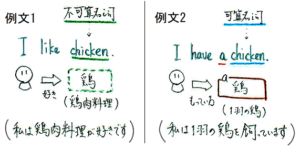 例文1
不可算名詞
I like chicken.
好き
鶏
(鶏肉料理)
(私は鶏肉料理が好きです)
例文2
可算名詞
I have a chicken.
もっている
a
鶏
(1羽の鶏)
(私は1羽の鶏を飼っています)